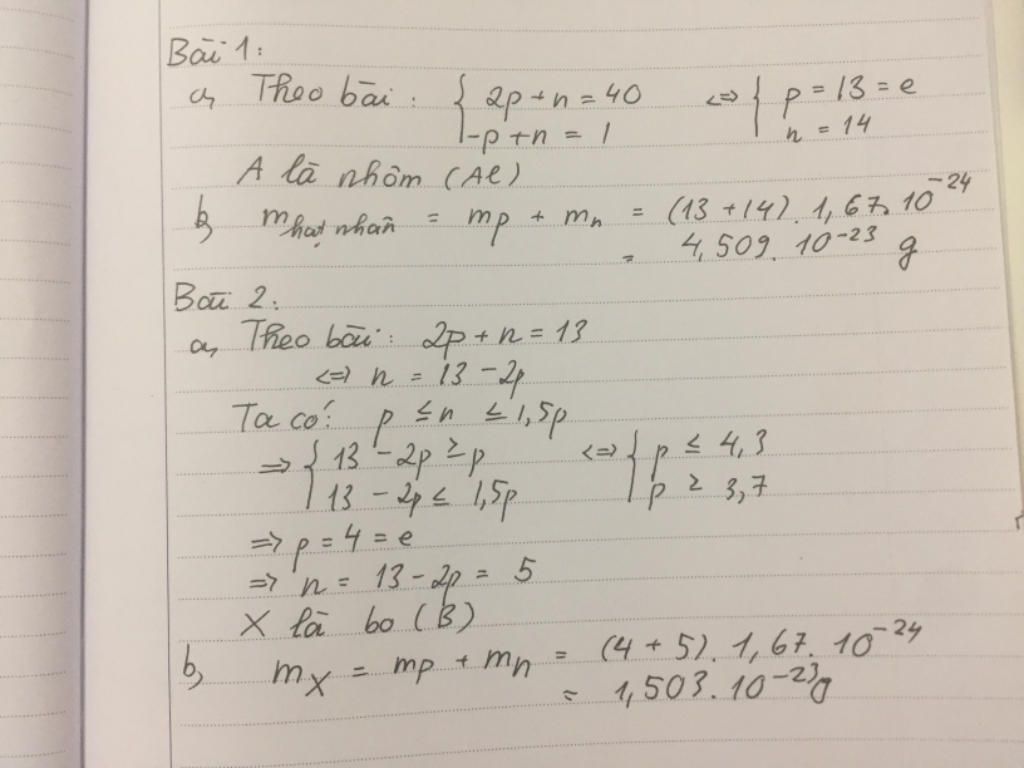 Bài 1:
a, Theo bài: { 2p + n = 40 <=> { p = 13 = e
-p + n = 1 n = 14
A là nhôm (Al)
b, m hạt nhân = mp + mn = (13 + 14). 1,67. 10^-24
= 4,509. 10^-23 g
Bài 2:
a, Theo bài: 2p + n = 13
<=> n = 13 - 2p
Ta có: p ≤ n ≤ 1,5p
=> { 13 - 2p ≥ p <=> { p ≤ 4,3
13 - 2p ≤ 1,5p p ≥ 3,7
=> p = 4 = e
=> n = 13 - 2p = 5
X là bo (B)
b, mX = mp + mn = (4 + 5). 1,67. 10^-24
= 1,503. 10^-23 g